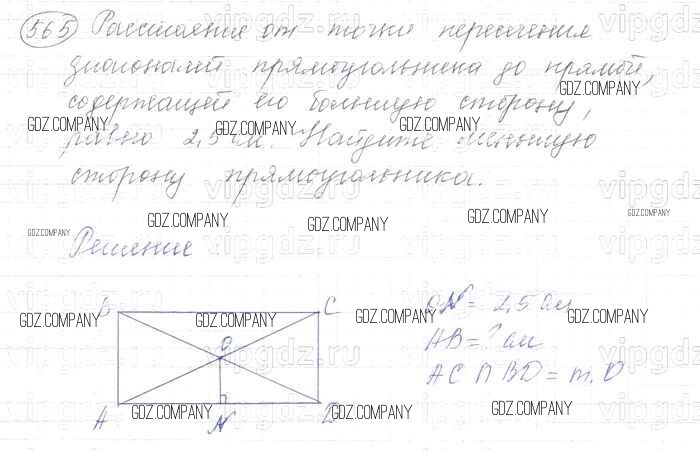 565 Расстояние от точки пересечения
диагоналей прямоугольника до прямой,
GDZ.COMPANY
содержащей его большую сторону,
GDZ.COMPANY GDZ.COMPANY GDZ.COMPANY
равно 2,5 см. Найдите меньшую
сторону прямоугольника.
GDZ.COMPANY GDZ.COMPANY GDZ.COMPANY GDZ.COMPANY
GDZ.COMPANY
Решение
vipgdz.ru
B C ON = 2,5 см
GDZ.COMPANY GDZ.COMPANY GDZ.COMPANY GDZ.COMPANY
O AB = ? см
AC ∩ BD = т. O
A GDZ.COMPANY N D GDZ.COMPANY GDZ.COMPANY